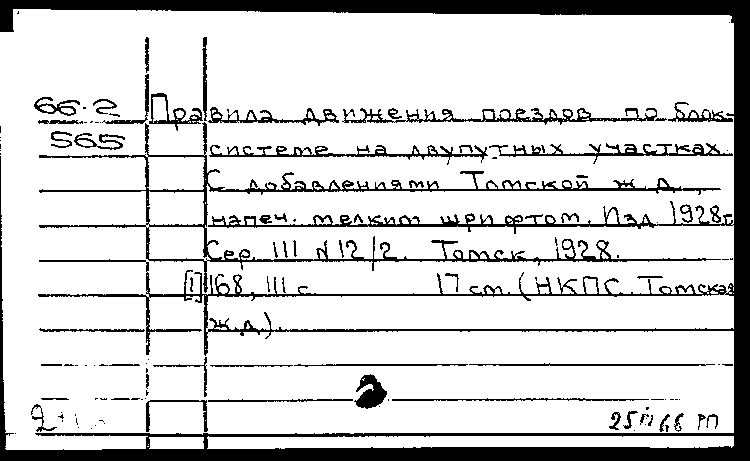 66-2
565
Правила движения поездов по блок-
системе на двупутных участках.
С добавлениями Томской ж.д.,
напеч. мелким шрифтом. Изд 1928г
Сер. III N12/2. Томск, 1928.
[1]168, III с. 17 см. (НКПС. Томская
ж.д.).
25 66 РП